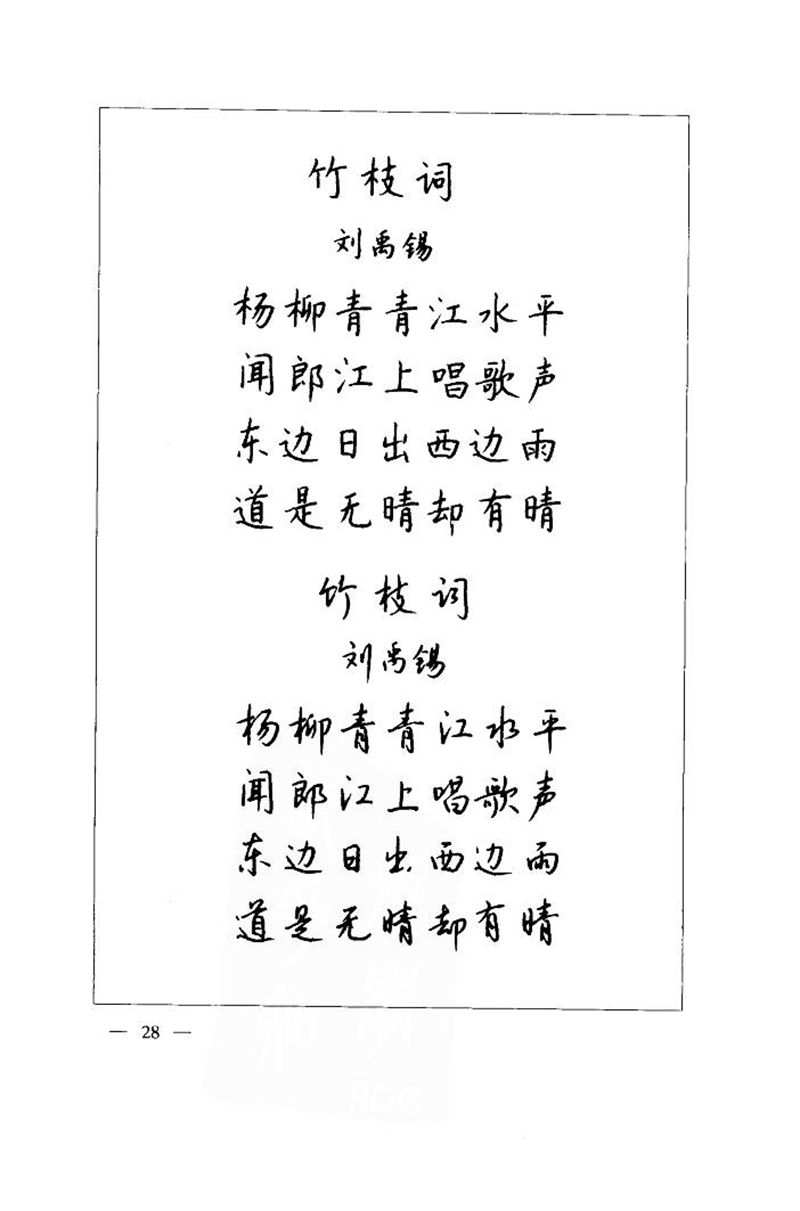 竹枝词
刘禹锡
杨柳青青江水平
闻郎江上唱歌声
东边日出西边雨
道是无晴却有晴
竹枝词
刘禹锡
杨柳青青江水平
闻郎江上唱歌声
东边日出西边雨
道是无晴却有晴
— 28 —
PDG